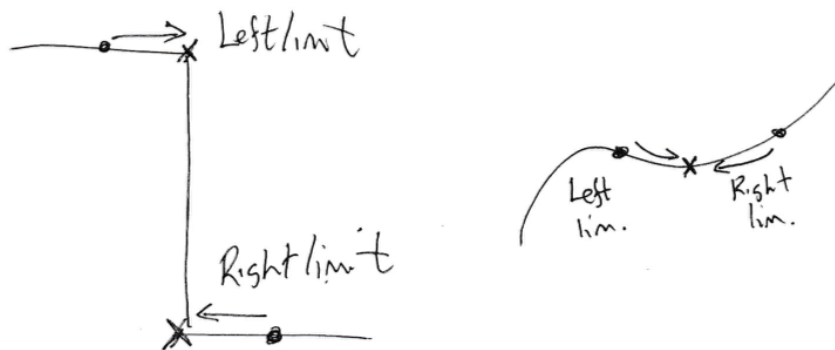 Left limit
Right limit
Left
lim.
Right
lim.